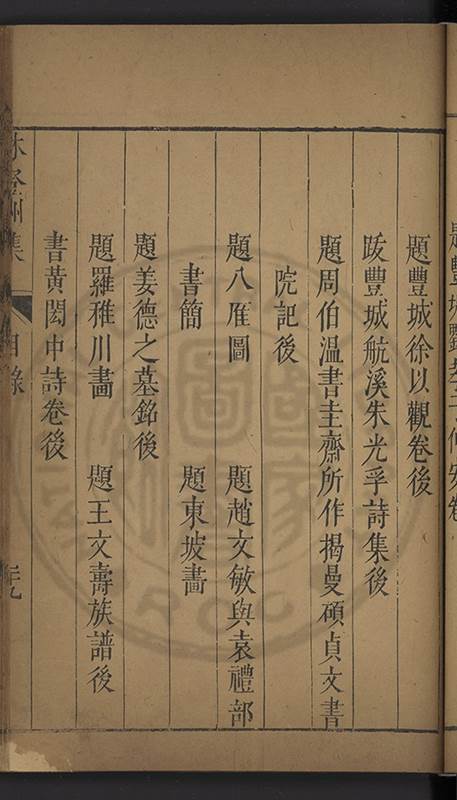 題豐城徐以觀卷後
跋豐城航溪朱光孚詩集後
題周伯溫書圭齋所作揭曼碩貞文書
院記後
題八雁圖　題趙文敏與袁禮部
書簡　題東坡畫
題姜德之墓銘後
題羅稚川畫　題王文壽族譜後
書黃閎中詩卷後
林登州集　目錄　二九